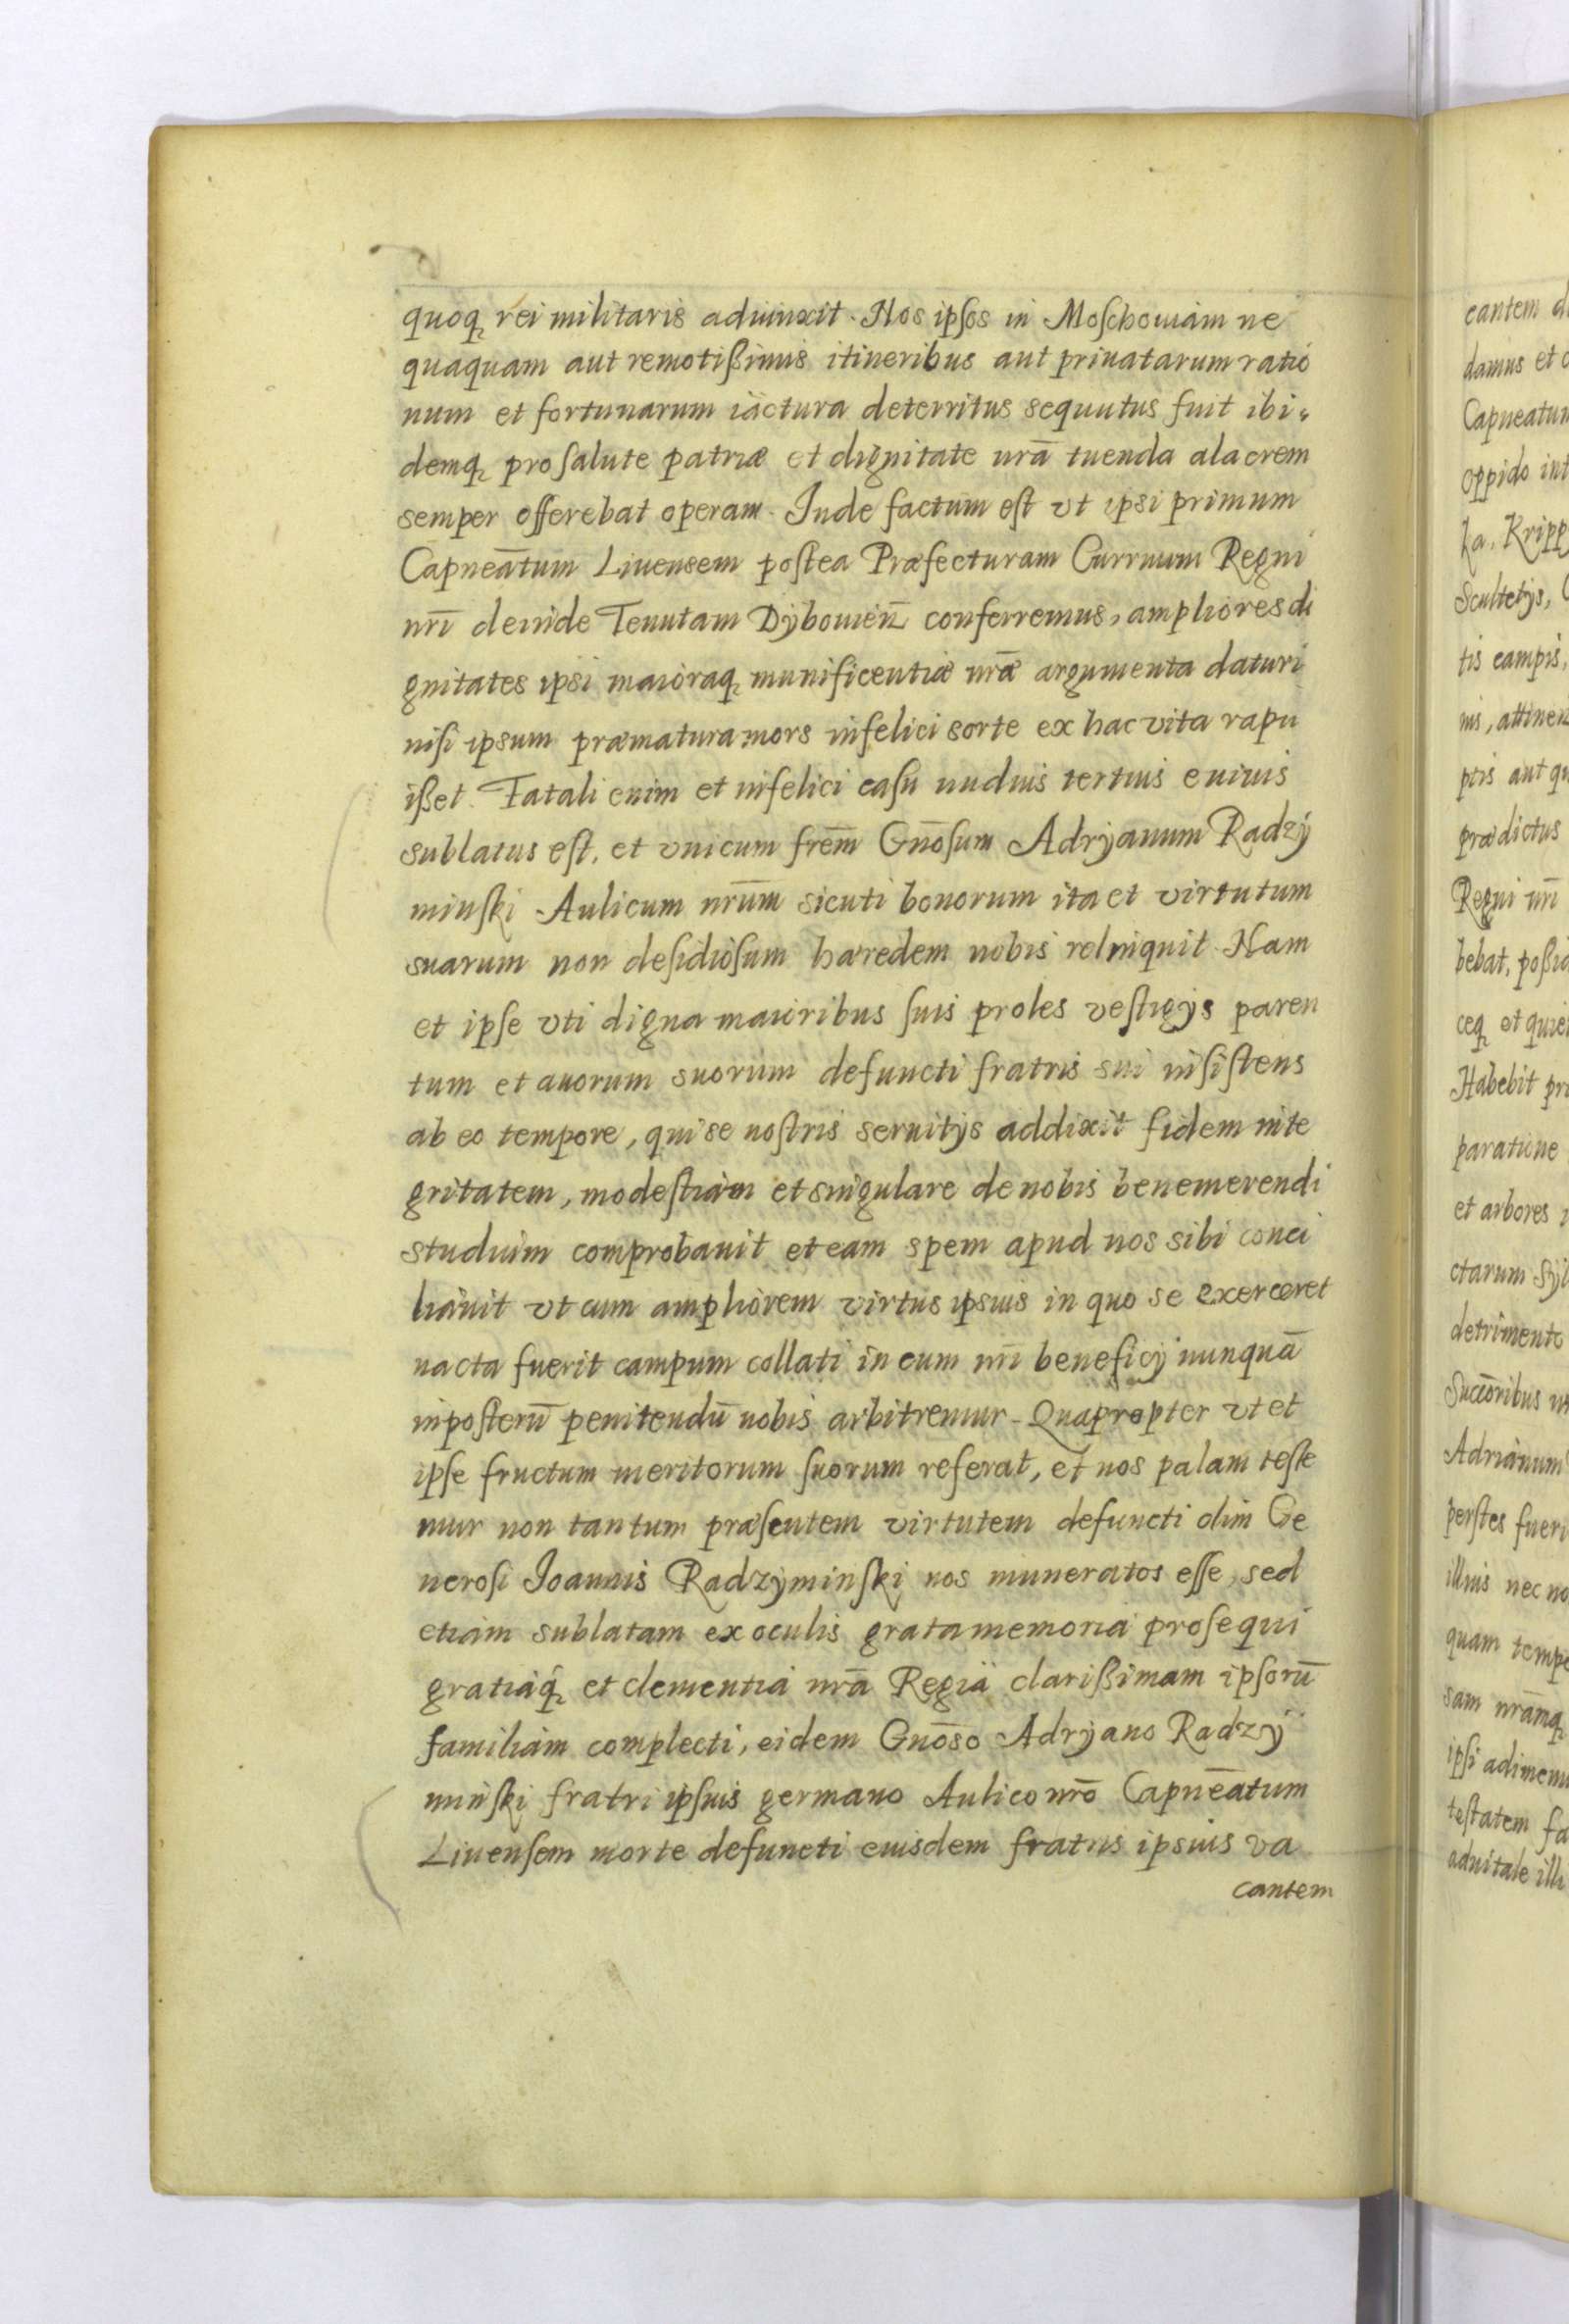 quoq rei militaris adiunxit. Nos ipsos in Moschouiam ne
quaquam aut remotißimis itineribus aut priuatarum ratio
num et fortunarum iactura deterritus sequutus fuit ibi„
demq pro salute patriæ et dignitate nrā tuenda alacrem
semper offerebat operam. Inde factum est vt ipsi primum
Capneātum Liuensem postea Præfecturam Curruum Regni
nrī deinde Tenutam Dÿbouien̄ conferremus, ampliores di
gnitates ipsi maioraq munificentiæ nrǣ argumenta daturi
nisi ipsum præmatura mors infelici sorte ex hac vita rapu
ißet. Fatali enim et infelici casu nudius tertius e viuis
sublatus est, et vnicum frem̄ Gnōsum Adrÿanum Radzÿ
minski Aulicum nrūm sicuti bonorum ita et virtutum
suarum non desidiosum hæredem nobis relinquit. Nam
et ipse vti digna maioribus suis proles vestigÿs paren
tum et auorum suorum defuncti fratris sui insistens
ab eo tempore, qui se nostris seruitÿs addixit fidem inte
gritatem, modestiam et singulare de nobis benemerendi
studium comprobauit et eam spem apud nos sibi conci
liauit vt cum ampliorem virtus ipsius in quo se exerceret
nacta fuerit campum collati in eum nrī beneficÿ nunquā
inposterū penitendū nobis arbitremur. Quapropter vt et
ipse fructum meritorum suorum referat, et nos palam teste
mur non tantum præsentem virtutem defuncti olim Ge
nerosi Joannis Radzÿminski nos muneratos esse, sed
etiam sublatam ex oculis grata memoria prosequi
gratiaq et clementia nrā Regia clarißimam ipsorū
familiam complecti, eidem Gnōso Adrÿano Radzÿ
minski fratri ipsius germano Aulico nrō Capnēatum
Liuensem morte defuncti eiusdem fratris ipsius va
cantem
cantem d
damus et c
Capneatum
oppido int
Scultetÿs,
tis campis,
nis, attinen
ptis aut qu
prædictus
Regni nrī
bebat, poßid
ceq et quie
Habebit pr
paratione
et arbores
ctarum Sÿl
detrimento
Succōribus
Adrianum
perstes fueri
illius nec no
quam temp
sam nrāmq
ipsi adimem
testatem fa
aduitale illi